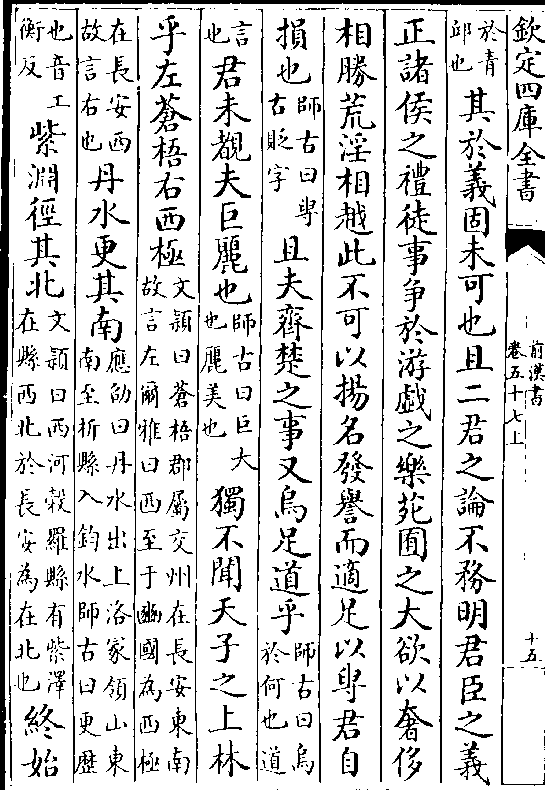 欽定四庫全書
前漢書
卷五十七上
十五
於青
邱也
其於義固未可也且二君之論不務明君臣之義
正諸侯之禮徒事爭於游戯之樂苑囿之大欲以奢侈
相勝荒淫相越此不可以揚名發譽而適足以𤰞君自
損也
師古曰𤰞
古貶字
且夫齊楚之事又烏足道乎
師古曰烏
於何也道
言
也
君未覩夫巨麗也
師古曰巨大
也麗美也
獨不聞天子之上林
乎左蒼梧右西極
文穎曰蒼梧郡屬交州在長安東南
故言左爾雅曰西至于豳國為西極
在長安西
故言右也
丹水更其南
應劭曰丹水出上洛冢領山東
南至析縣入鈞水師古曰更歴
也音工
衡反
紫淵徑其北
文穎曰西河榖羅縣有紫澤
在縣西北於長安為在北也
終始